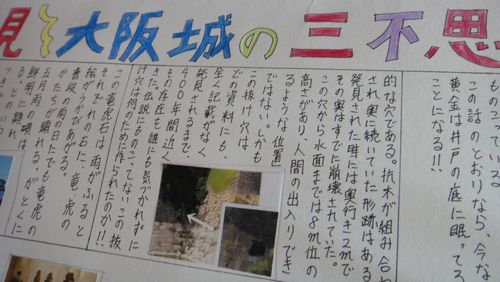 見〜大阪城の三不思
ものこって
この話のとおりなら、今な
黄金は井戸の底に眠ってる
ことになる!!
的な穴である。抗木が組み合わ
され奥に続いていた形跡はある
発見された時には奥行き2mで
その奥はすでに崩壊されていた。
この穴から水面までは8m位の
高さがあり、人間の出入りでき
るような位置
ではない。しかも
この抜け穴は、
どの資料にも、
全く記載がなく
発見されるまで、
400年間近く
その存在を誰にも気づかれずに
きた。伝説にものこってない。この抜
け穴は何のために作られたのか!!
この竜虎石は、雨がふると
それぞれの石に、竜、虎の
絵がうかびあがる。
普段の雨の日でも竜虎の
かたちが顕れるが、とくに
五月雨の頃
鮮明に顕れ